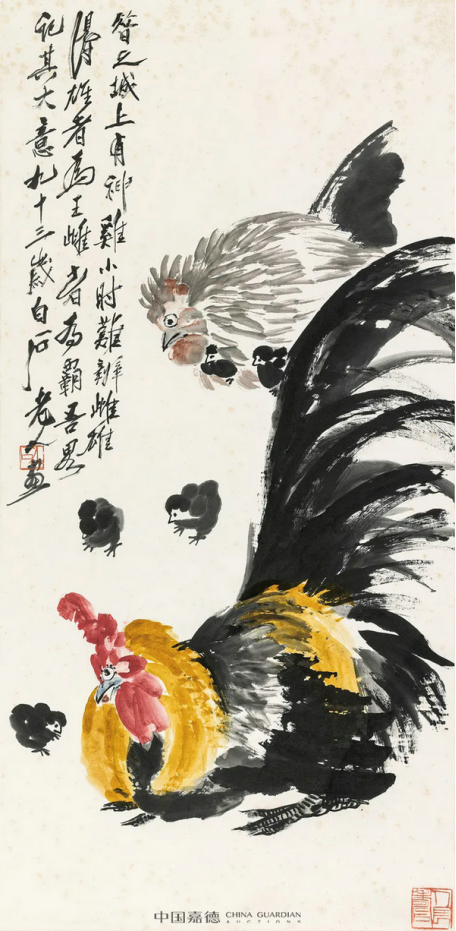 之城上有神雞小时難辨雌雄
得雄者為王雌者為霸吾畧
記其大意九十三歲白石老人畫
中国嘉德 CHINA GUARDIAN
AUCTIONS